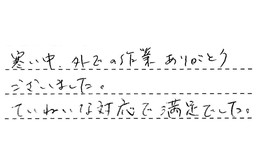 寒い中、外での作業ありがとう
ございました。
ていねいな対応で満足でした。